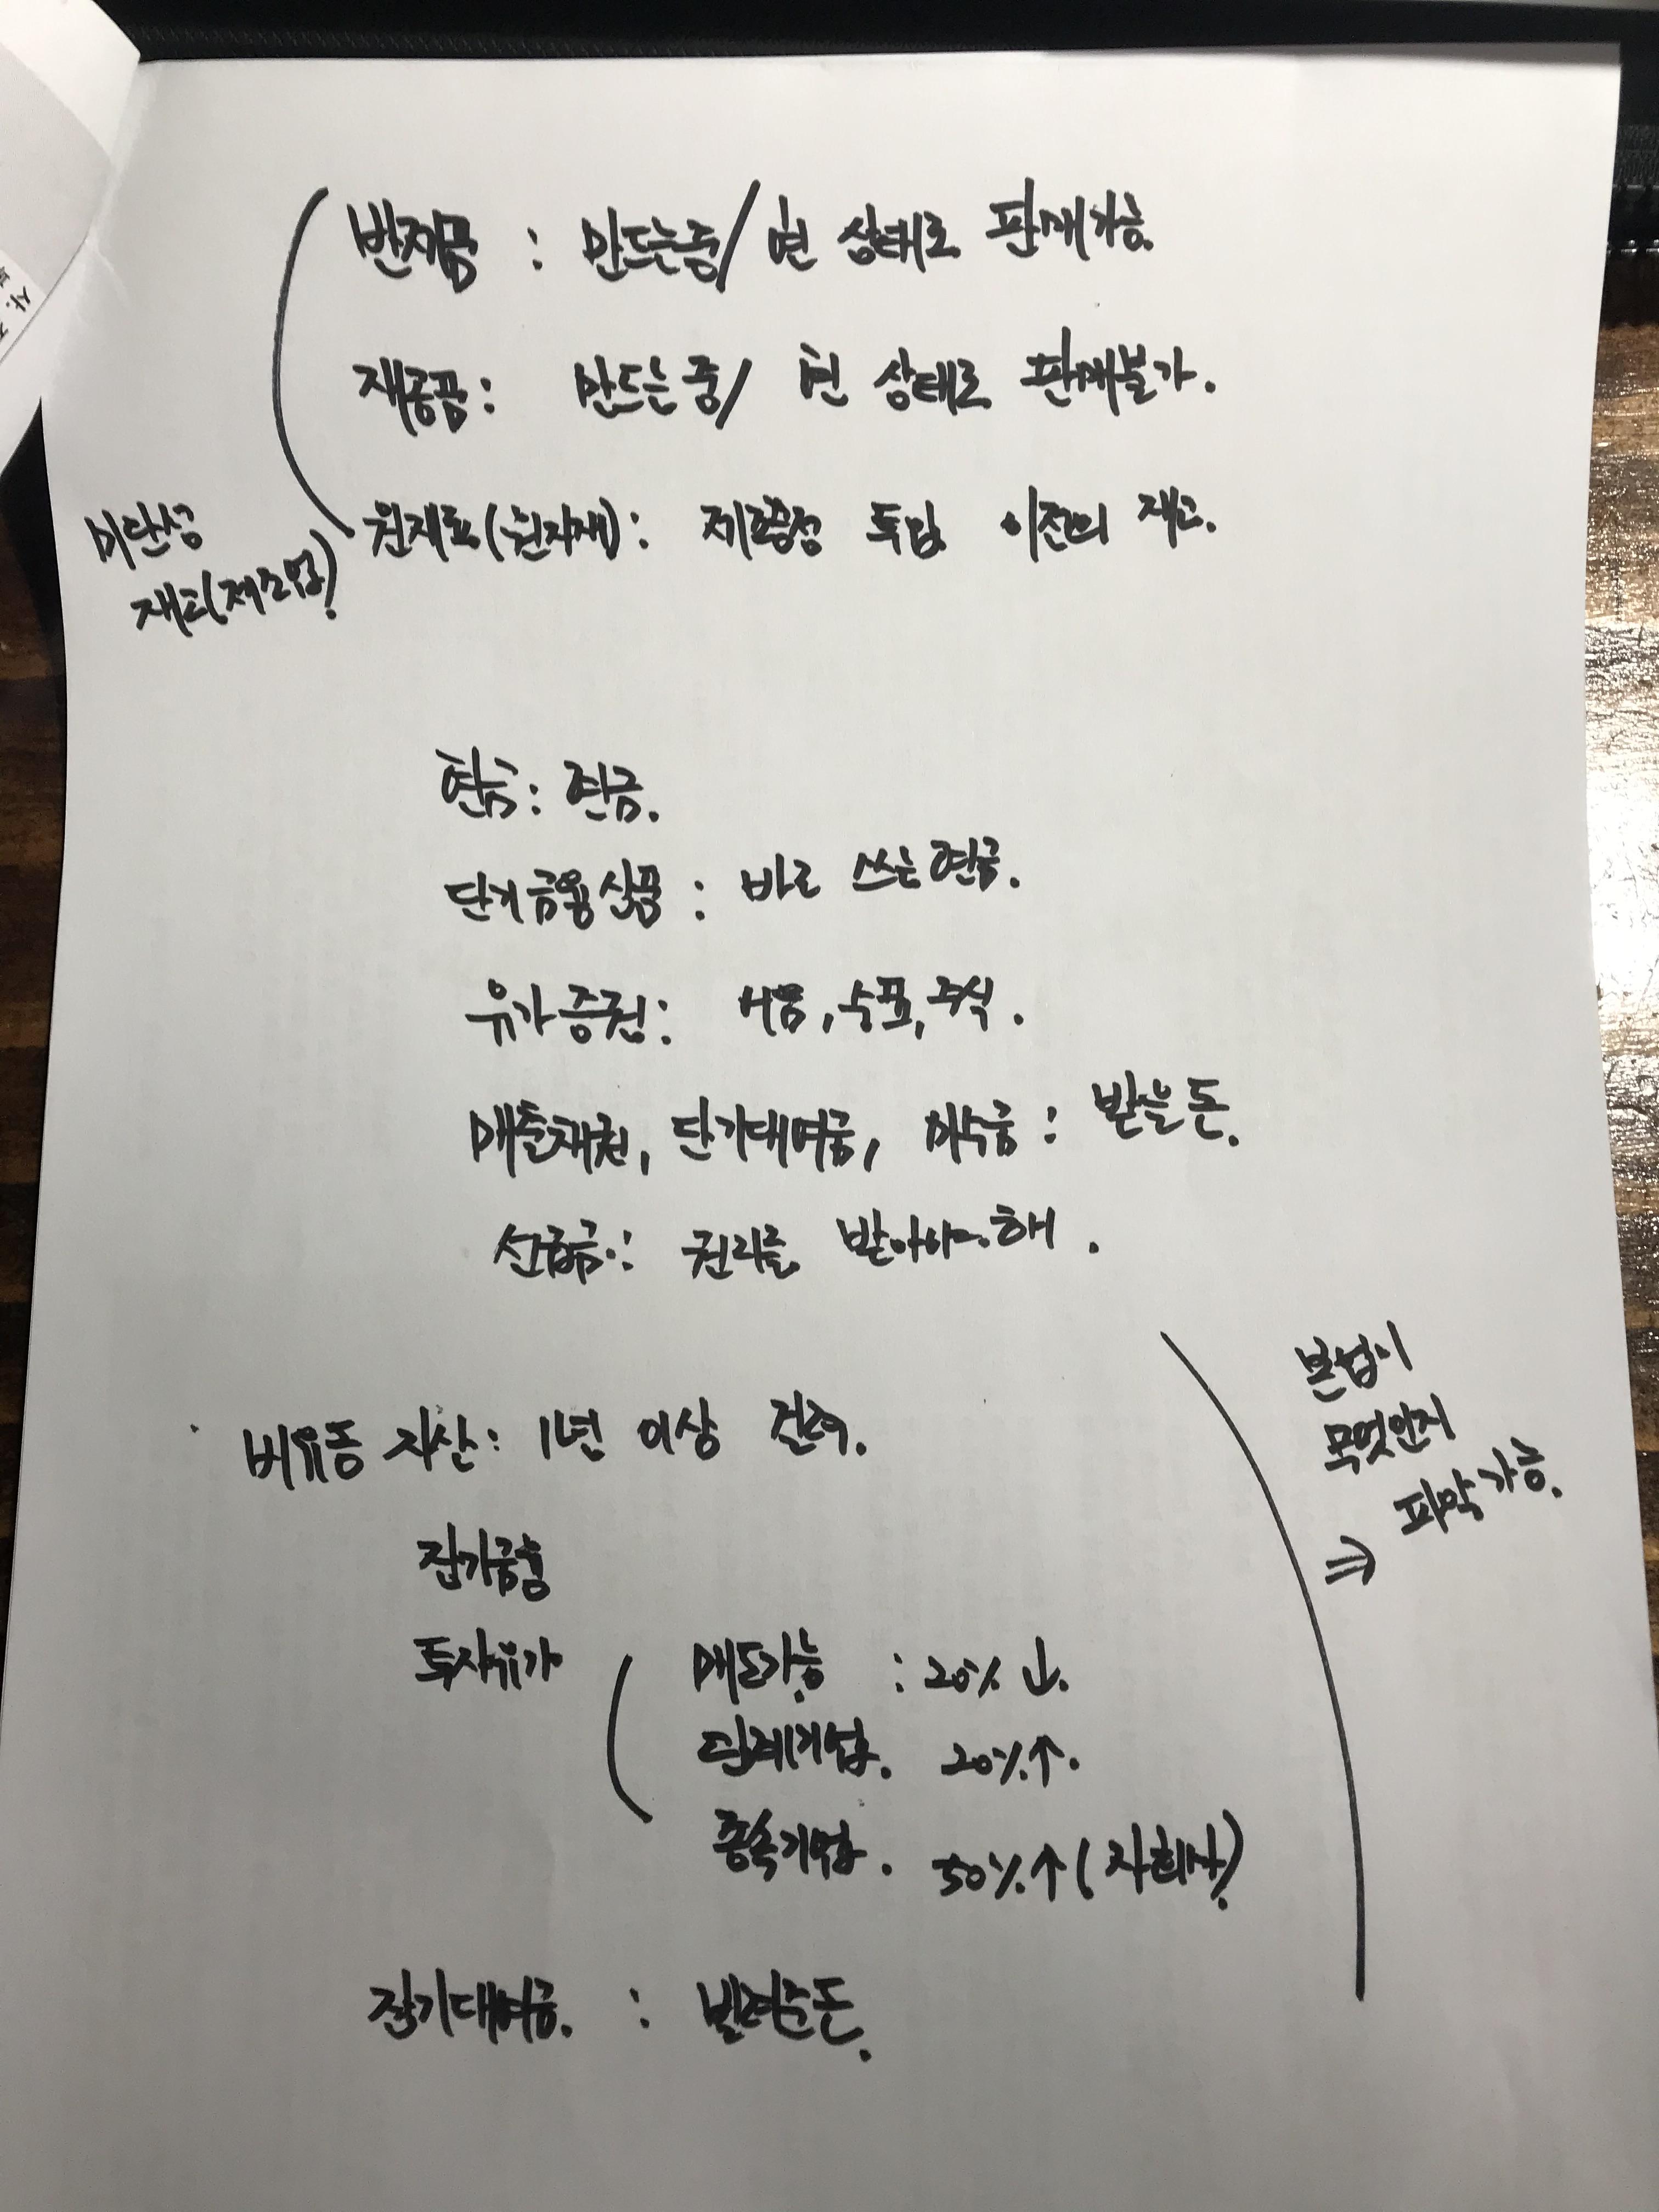 반제품 : 만드는중/ 현 상태로 판매가능.
재공품 : 만드는 중/ 현 상태로 판매불가.
원재료(원자재) : 제조공정 투입 이전의 재고.
미완성
재고(제조업)
현금 : 현금.
단기금융상품 : 바로 쓰는 현금.
유가증권 : 어음, 수표, 주식.
매출채권, 단기대여금, 미수금 : 받을 돈.
선급금 : 권리를 받아야 해.
비유동 자산 : 1년 이상 걸려.
장기금융
투자유가
매도가능 : 20% ↓.
관계기업. 20%↑.
종속기업. 50%↑ (자회사)
장기대여금. : 빌려준돈.
본업이
무엇인지
파악 가능.
⇒